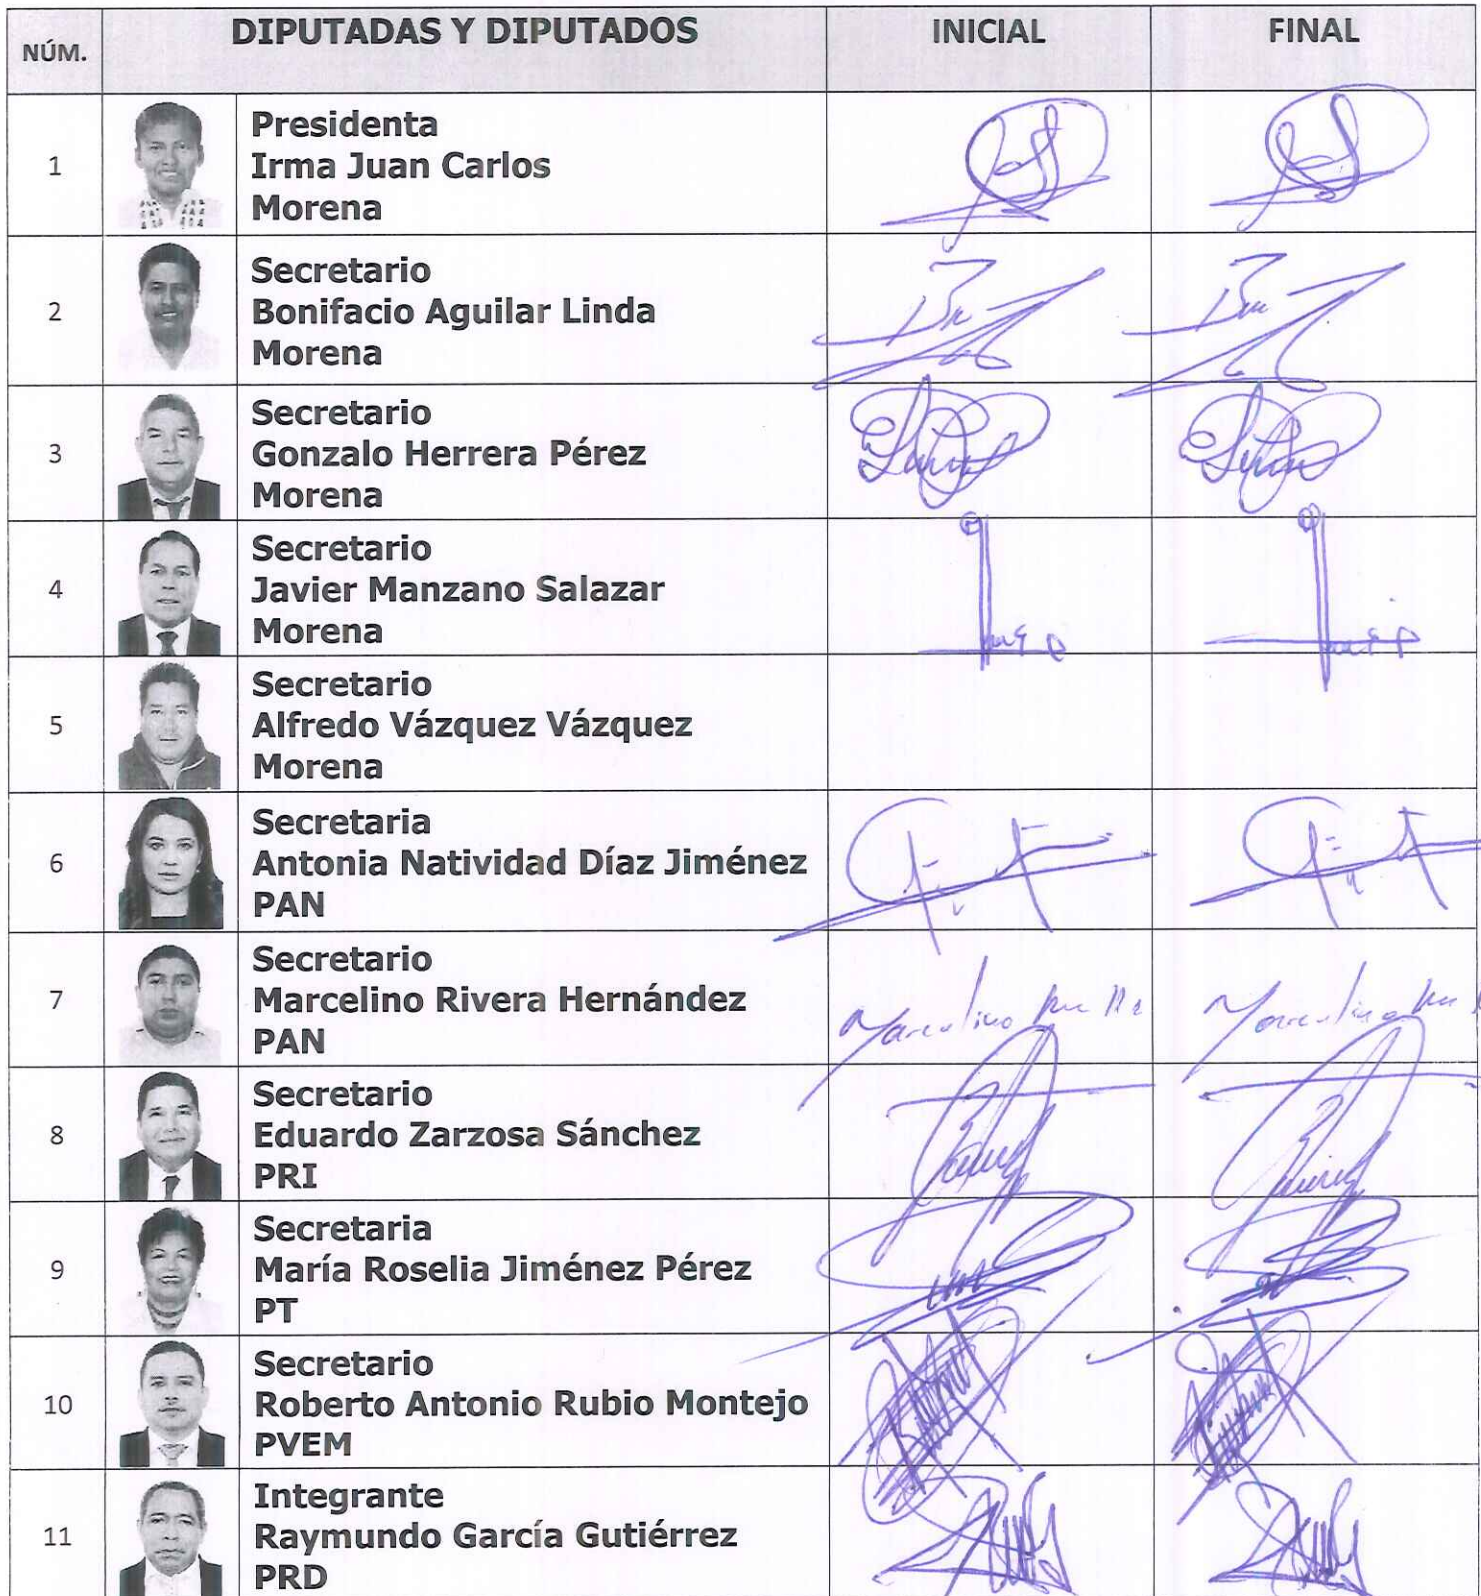 NÚM. DIPUTADAS Y DIPUTADOS INICIAL FINAL
1
Presidenta
Irma Juan Carlos
Morena
2
Secretario
Bonifacio Aguilar Linda
Morena
3
Secretario
Gonzalo Herrera Pérez
Morena
4
Secretario
Javier Manzano Salazar
Morena
5
Secretario
Alfredo Vázquez Vázquez
Morena
6
Secretaria
Antonia Natividad Díaz Jiménez
PAN
7
Secretario
Marcelino Rivera Hernández
PAN
Marcelino
Marcelino
8
Secretario
Eduardo Zarzosa Sánchez
PRI
9
Secretaria
María Roselia Jiménez Pérez
PT
10
Secretario
Roberto Antonio Rubio Montejo
PVEM
11
Integrante
Raymundo García Gutiérrez
PRD